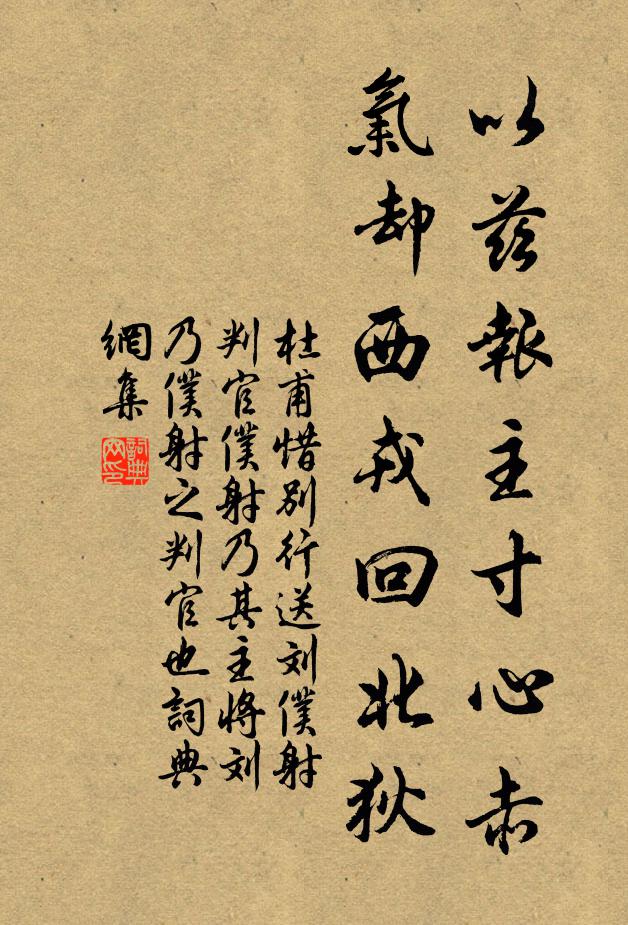 以茲報主寸心赤
氣却西戎回北狄
杜甫惜別行送刘僕射
判官僕射乃其主將刘
乃僕射之判官也詞典
網集
詞典
网印